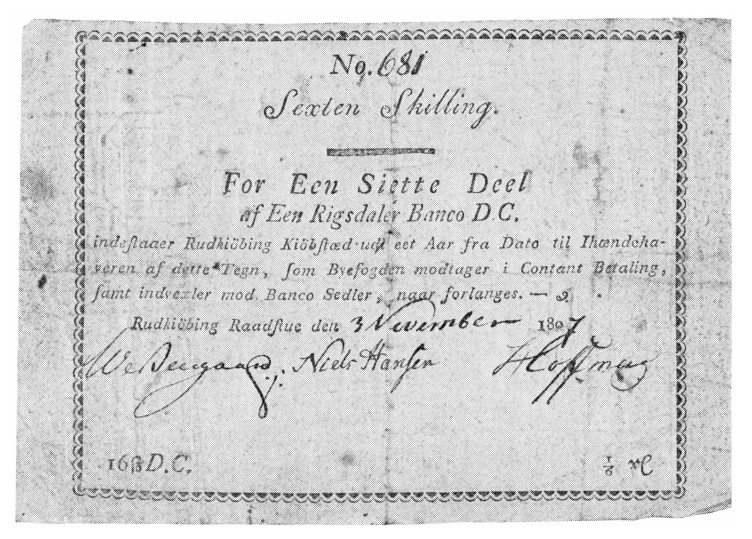 No. 681
Sexten Skilling.
For Een Siette Deel
af Een Rigsdaler Banco D.C.
indestaaer Rudkiöbing Kiöbstæd udi eet Aar fra Dato til Ihændeha-
veren af dette Tegn, som Byefogden modtager i Contant Betaling,
samt indvexler mod Banco Sedler, naar forlanges.
Rudkiöbing Raadstue den 3 November 1807
Westengaard. Niels Hansen Hoffman
16 ß D.C. 1/6